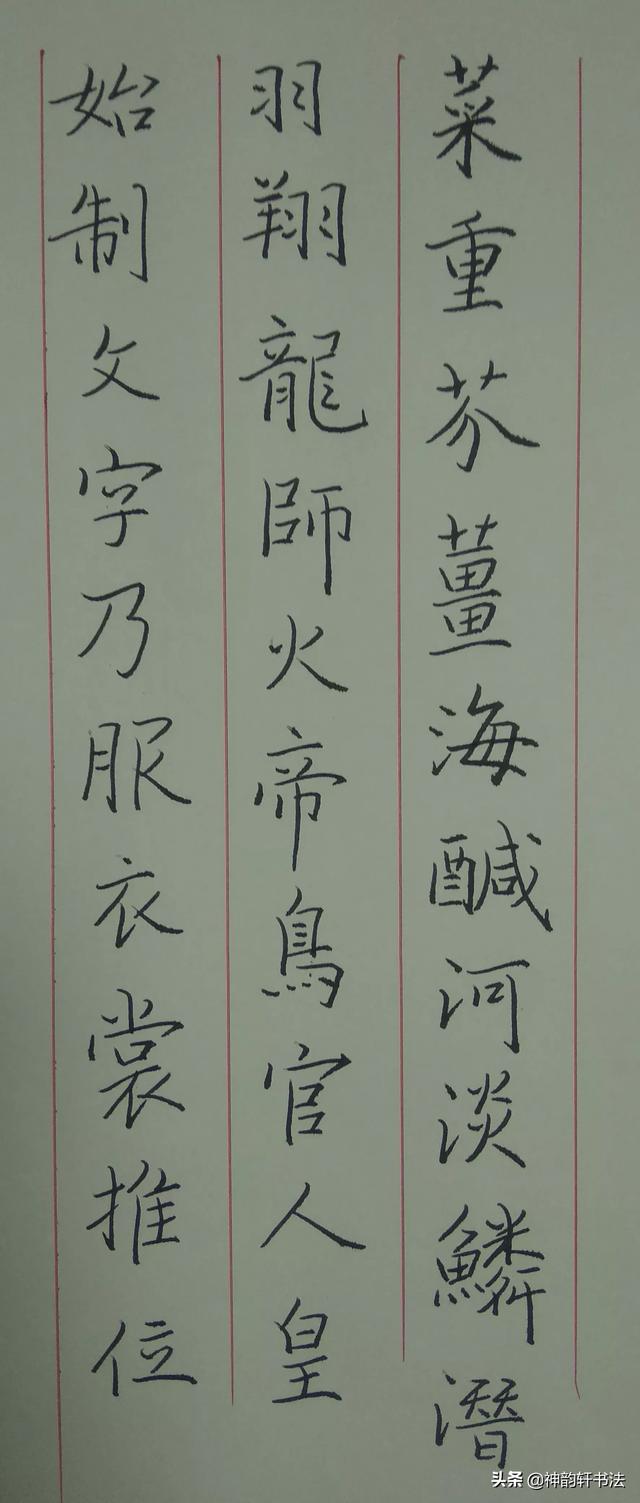 菜重芥薑海醎河淡鱗潛
羽翔龍師火帝鳥官人皇
始制文字乃服衣裳推位
头条 @神韵轩书法